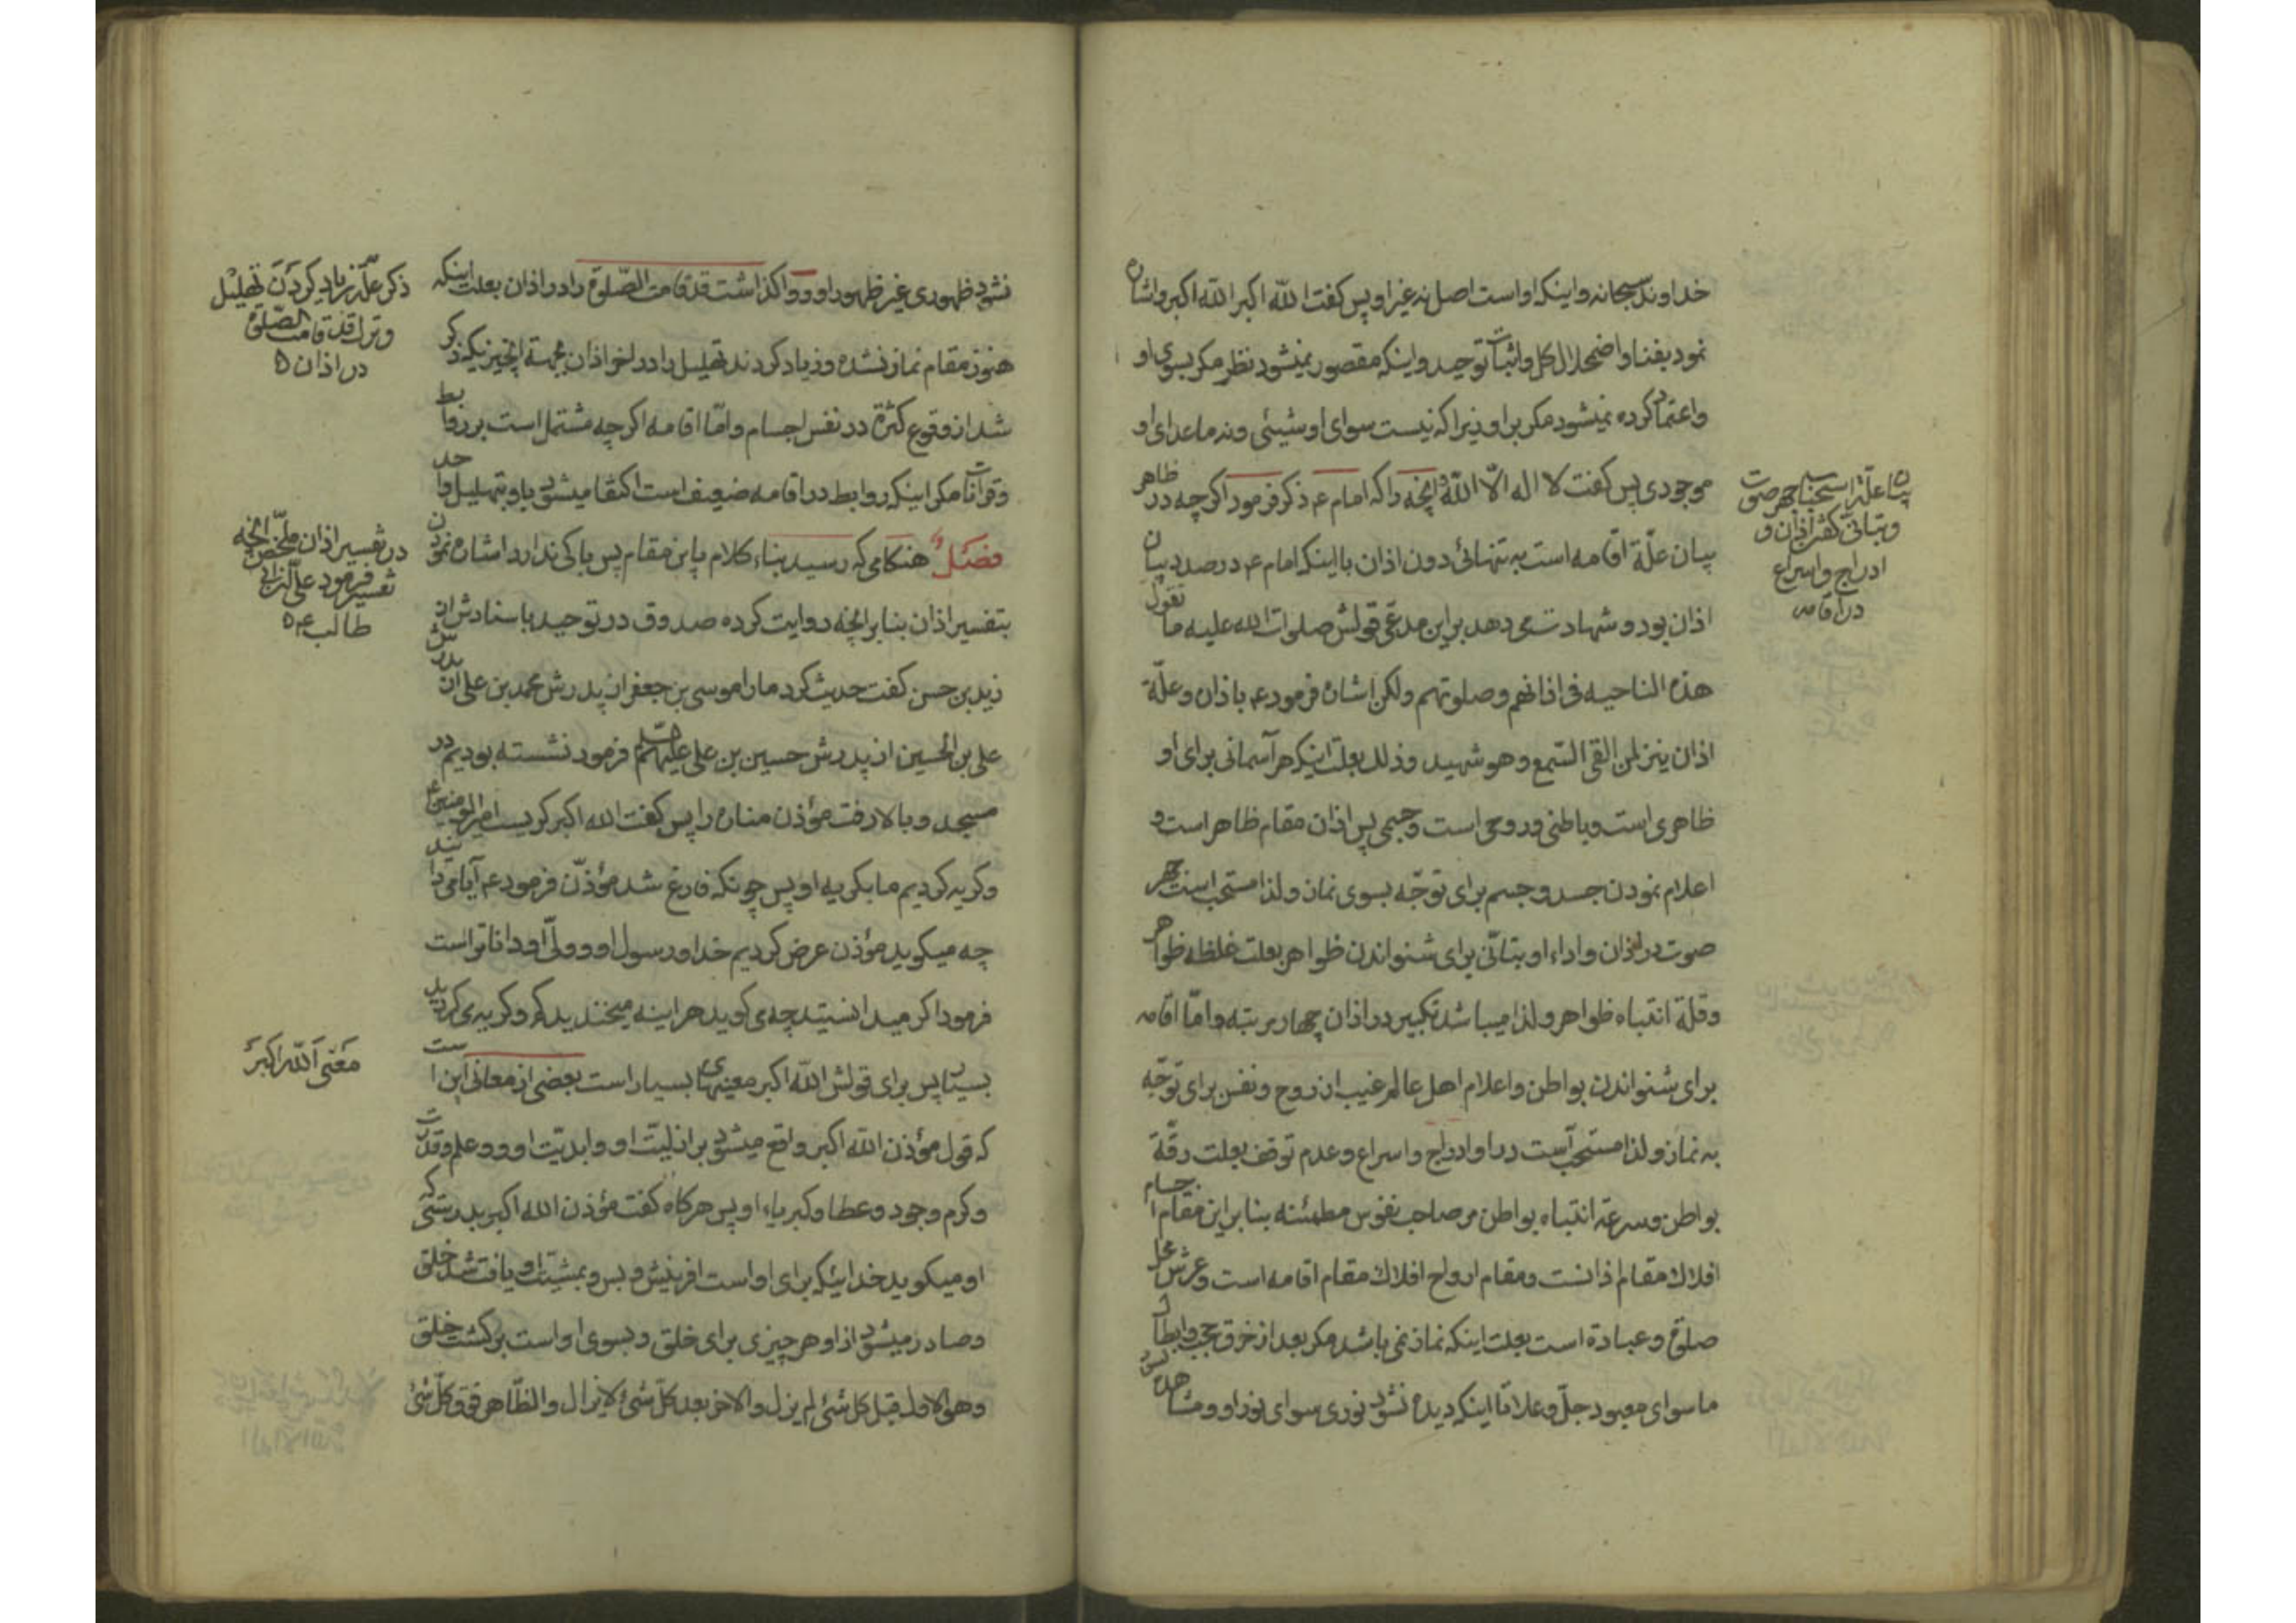 خداوند سبحانه و اینکه او است اصل نه غیر او پس کفت الله اکبر الله اکبر و اشاره
نمود بفنا و اضمحلال کل و اثبات توحید و اینکه مقصور نمیشود نظر مکر بسوی او
و اعتماد کرده نمیشود مکر بر او زیرا که نیست سوای او شیئی و نه ماعدای او
موجودی پس کفت لا اله الّا الله و انچه را که امام ع ذکر فرمود اکر چه در ظاهر
بیان علّة اقامه است به تنهائی دون اذان با اینکه امام ع در صدد بیان
اذان بود و شهادت می دهد بر این مدعی قولش صلوات الله علیه ما تقول
هذه الناحیه فی اذانهم و صلوتهم ولکن اشاره فرمود ع باذان و علّة
اذان نیز لمن القی السّمع و هو شهید و ذلک بعلت اینکه هر آسمانی برای او
ظاهری است و باطنی و روحی است و جسمی پس اذان مقام ظاهر است و
اعلام نمودن جسد و جسم برای توجّه بسوی نماز و لذا مستحب است جهر
صوت در اذان و اداء او بتانّی برای شنواندن ظواهر بعلت غلظه ظواهر
و قلة انتباه ظواهر و لذا میباشد تکبیر در اذان چهار مرتبه و امّا اقامه
برای شنواندن بواطن و اعلام اهل عالم غیب از روح و نفس برای توجّه
به نماز و لذا مستحب است در او ادراج و اسراع و عدم توقف بعلت رقّة
بواطن و سرعة انتباه بواطن مر صاحب نفوس مطمئنه بنا بر این مقام اجسام
افلاک مقام اذانست و مقام ارواح افلاک مقام اقامه است و عرش محل
صلوة و عبادة است بعلت اینکه نماز نمی باشد مکر بعد از خرق حجب و ابطال
ما سوای معبود جلّ و علا تا اینکه دیده نشود نوری سوای نور او و مشاهده
بیان علّة استحباب جهر صوت
و بتانّی کفتن اذان و
ادراج و اسراع
در اقامه
نشود ظهوری غیر ظهور او و واکذاشت قد قامت الصّلوة را در اذان بعلت اینکه
هنوز مقام نماز نشده و زیاد کردند تهلیل را در اخر اذان بجهة انچیزیکه ذکر
شد از وقوع کثرة در نفس اجسام و امّا اقامه اکر چه مشتمل است بر روابط
و قرانات مکر اینکه روابط در اقامه ضعیف است اکتفا میشود باو بتهلیل واحد
فصل هنکامی که رسید بناء کلام باین مقام پس باکی ندارد اشاره نمودن
بتفسیر اذان بنا بر انچه روایت کرده صدوق در توحید باسنادش از
زید بن حسن کفت حدیث کرد ما را موسی بن جعفر از پدرش محمد بن علی از پدرش
علی بن الحسین از پدرش حسین بن علی علیهم السلام فرمود نشسته بودیم در
مسجد و بالا رفت مؤذن مناره را پس کفت الله اکبر کریست امیر المومنین ع
و کریه کردیم ما بکریه او پس چونکه فارغ شد مؤذّن فرمود ع آیا می دانید
چه میکوید مؤذن عرض کردیم خدا و رسول او و ولیّ او داناتر است
فرمود اکر میدانستید چه می کوید هراینه میخندیدید کم و کریه می کردید
بسیار پس برای قولش الله اکبر معنیهای بسیار است بعضی از معانی این است
که قول مؤذن الله اکبر واقع میشود بر ازلیّت او و ابدیّت او و علم و قدرت
و کرم و جود و عطا و کبریاء او پس هر کاه کفت مؤذن الله اکبر بدرستی که
او میکوید خدائیکه برای او است افرینش و بس و بمشیّت او یافت شد خلق
و صادر میشود از او هر چیزی برای خلق و بسوی او است برکشت خلق
و هو الاول قبل کل شئ لم یزل و الاخر بعد کلّ شئ لایزال و الظّاهر فوق کلّ شئ
ذکر علّة زیاد کردن تهلیل
و ترک قد قامت الصّلوة
در اذان
در تفسیر اذان ملخّص انچه
تفسیر فرمود علی بن ابی
طالب ع
معنی الله اکبر